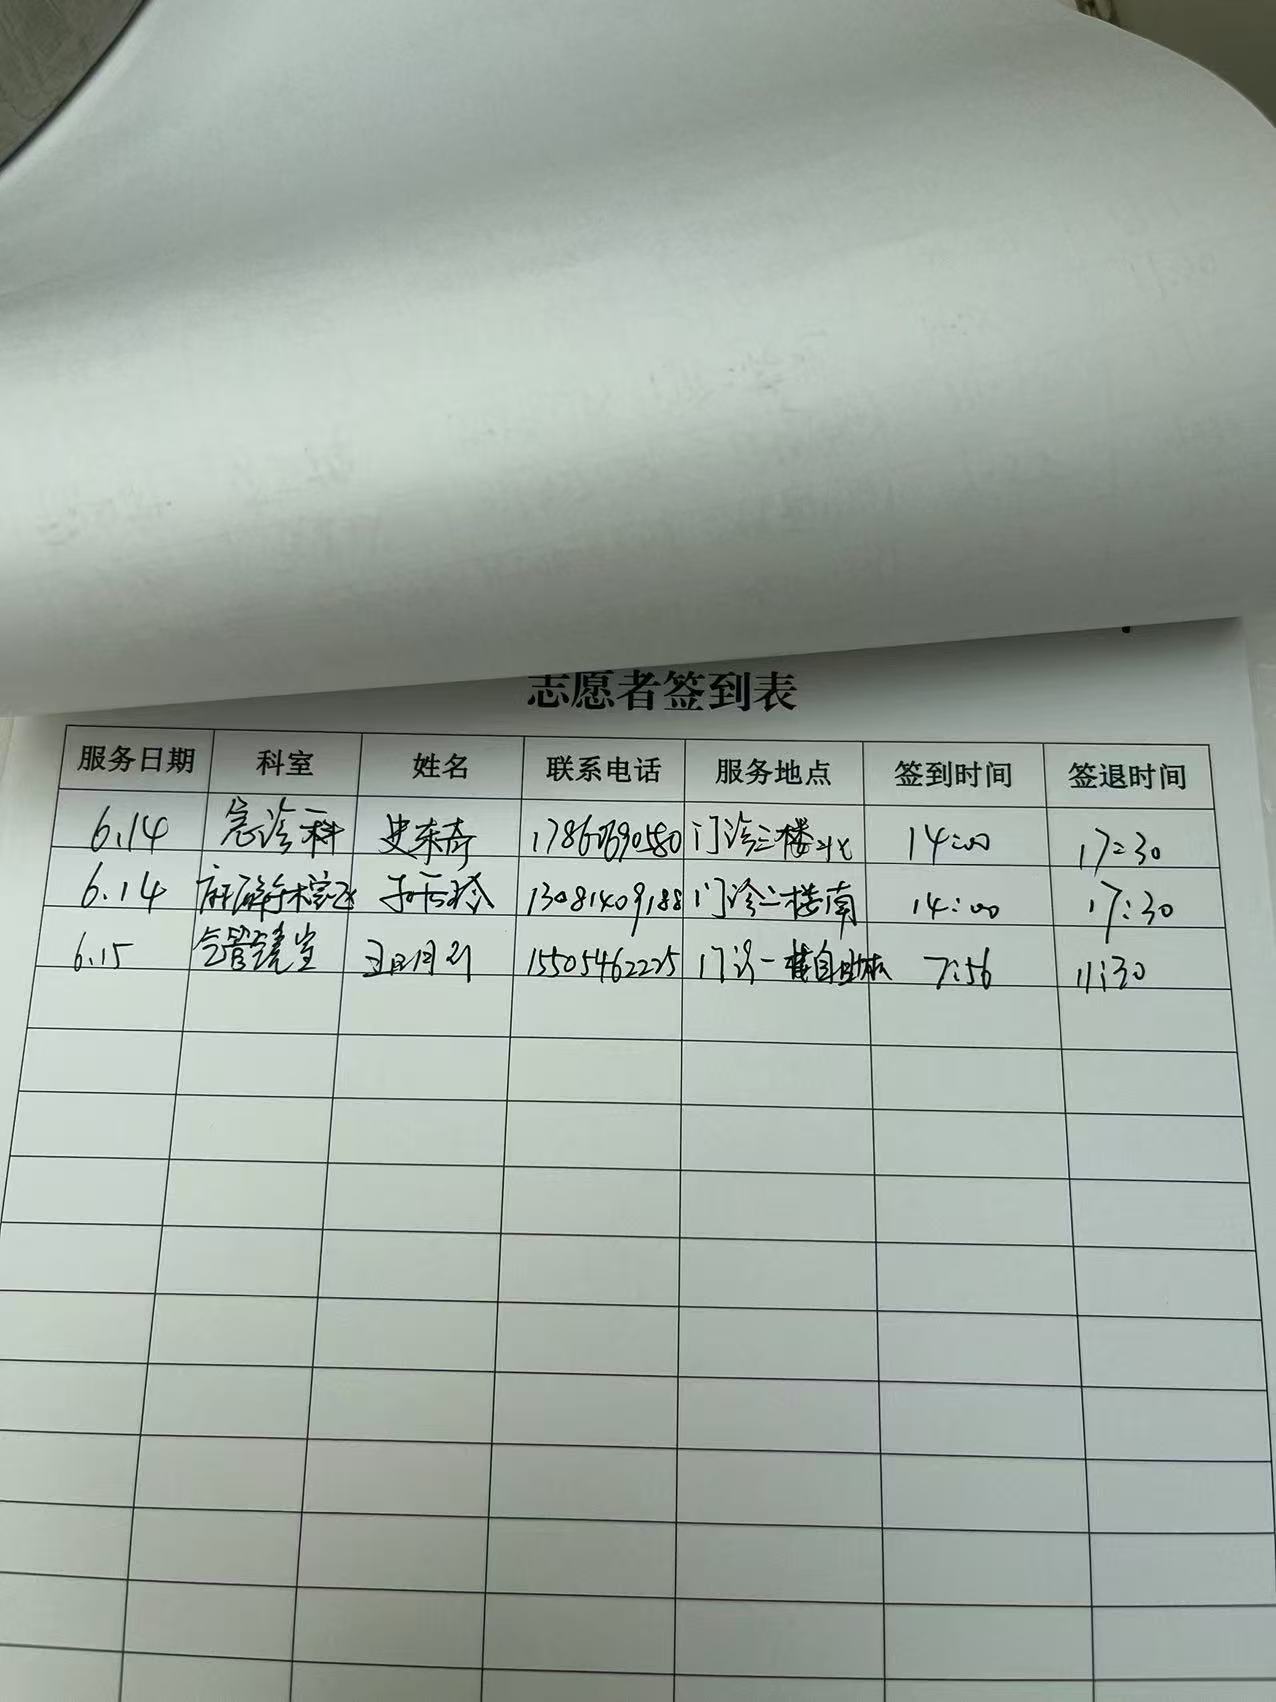 志愿者签到表
服务日期 科室 姓名 联系电话 服务地点 签到时间 签退时间
6.14 急诊科 史东奇 17860690580 门诊三楼北 14:00 17:30
6.14 麻醉手术室 13081409188 门诊二楼南 14:00 17:30
6.15 气管镜室 15505462225 门诊一楼自助机 7:56 11:30